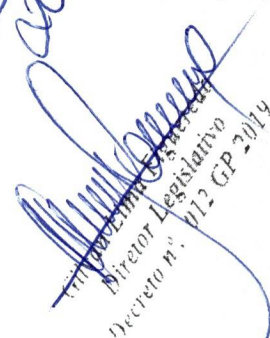 Lima Figueredo
Diretor Legislativo
Decreto nº. 012 GP 2019